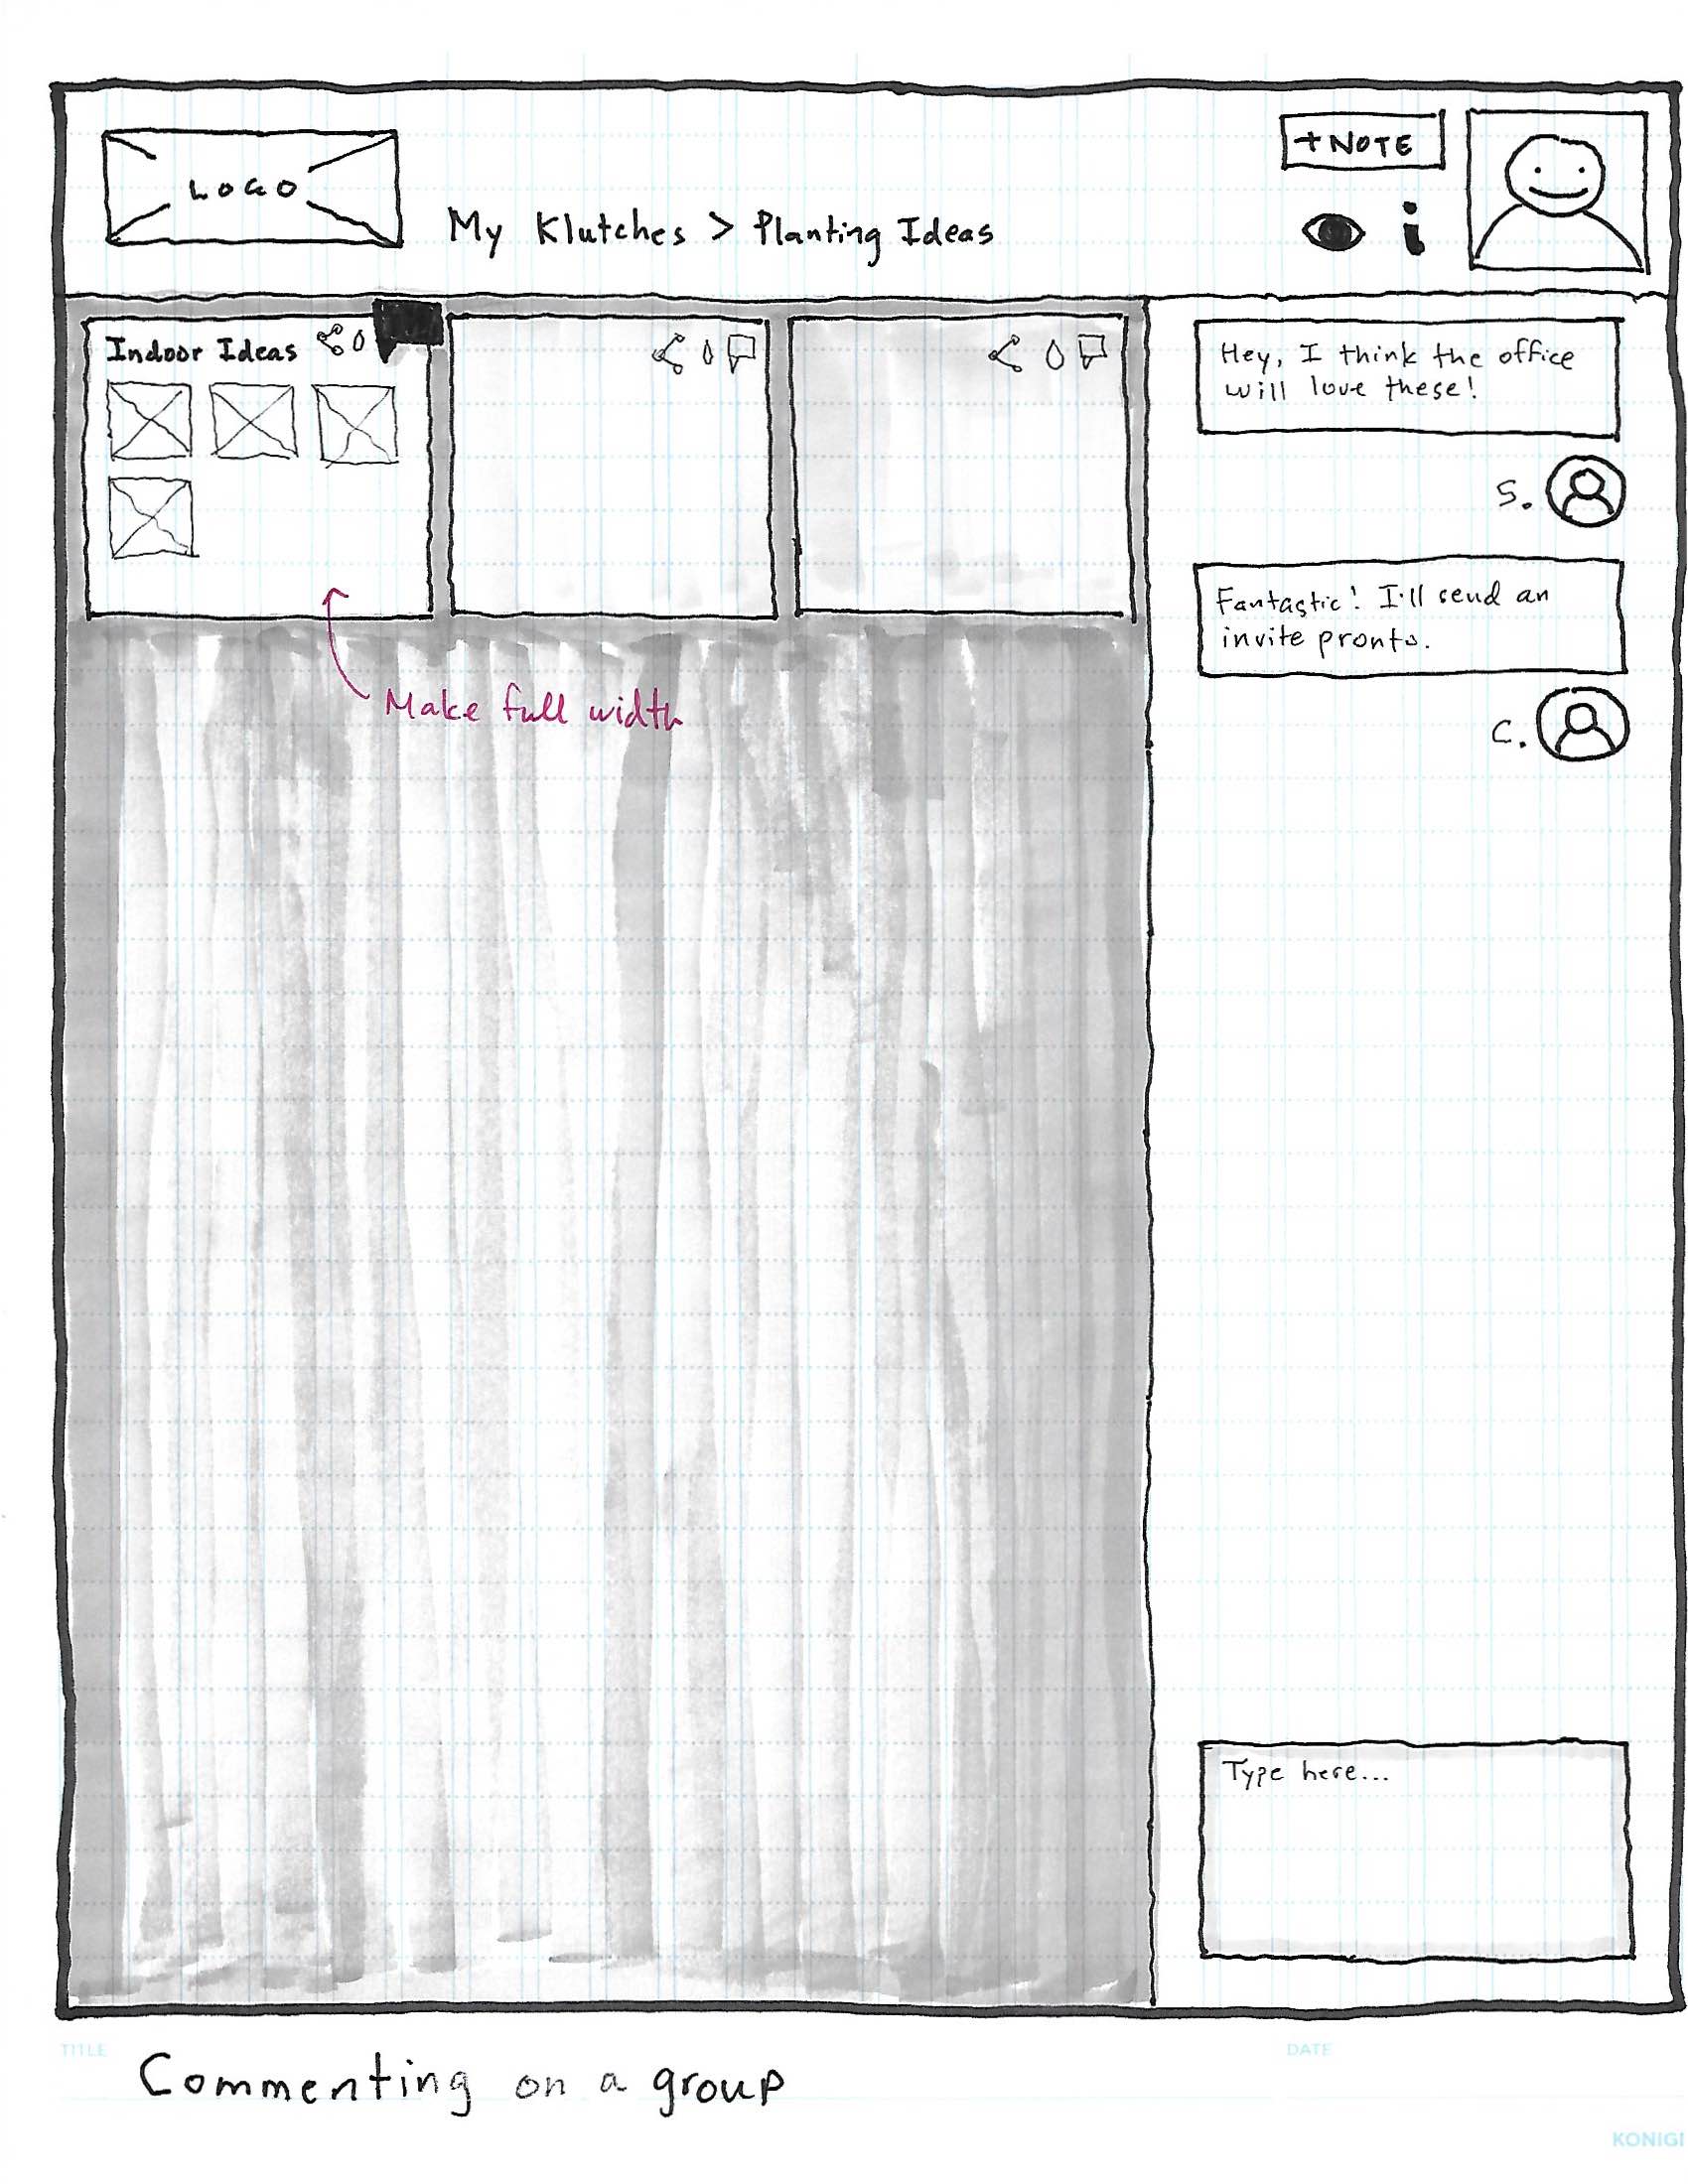 LOGO
My Klutches > Planting Ideas
+NOTE
i
Indoor Ideas
Hey, I think the office
will love these!
S.
Fantastic! I'll send an
invite pronto.
C.
Make full width
Type here...
TITLE
Commenting on a group
DATE
KONIGI